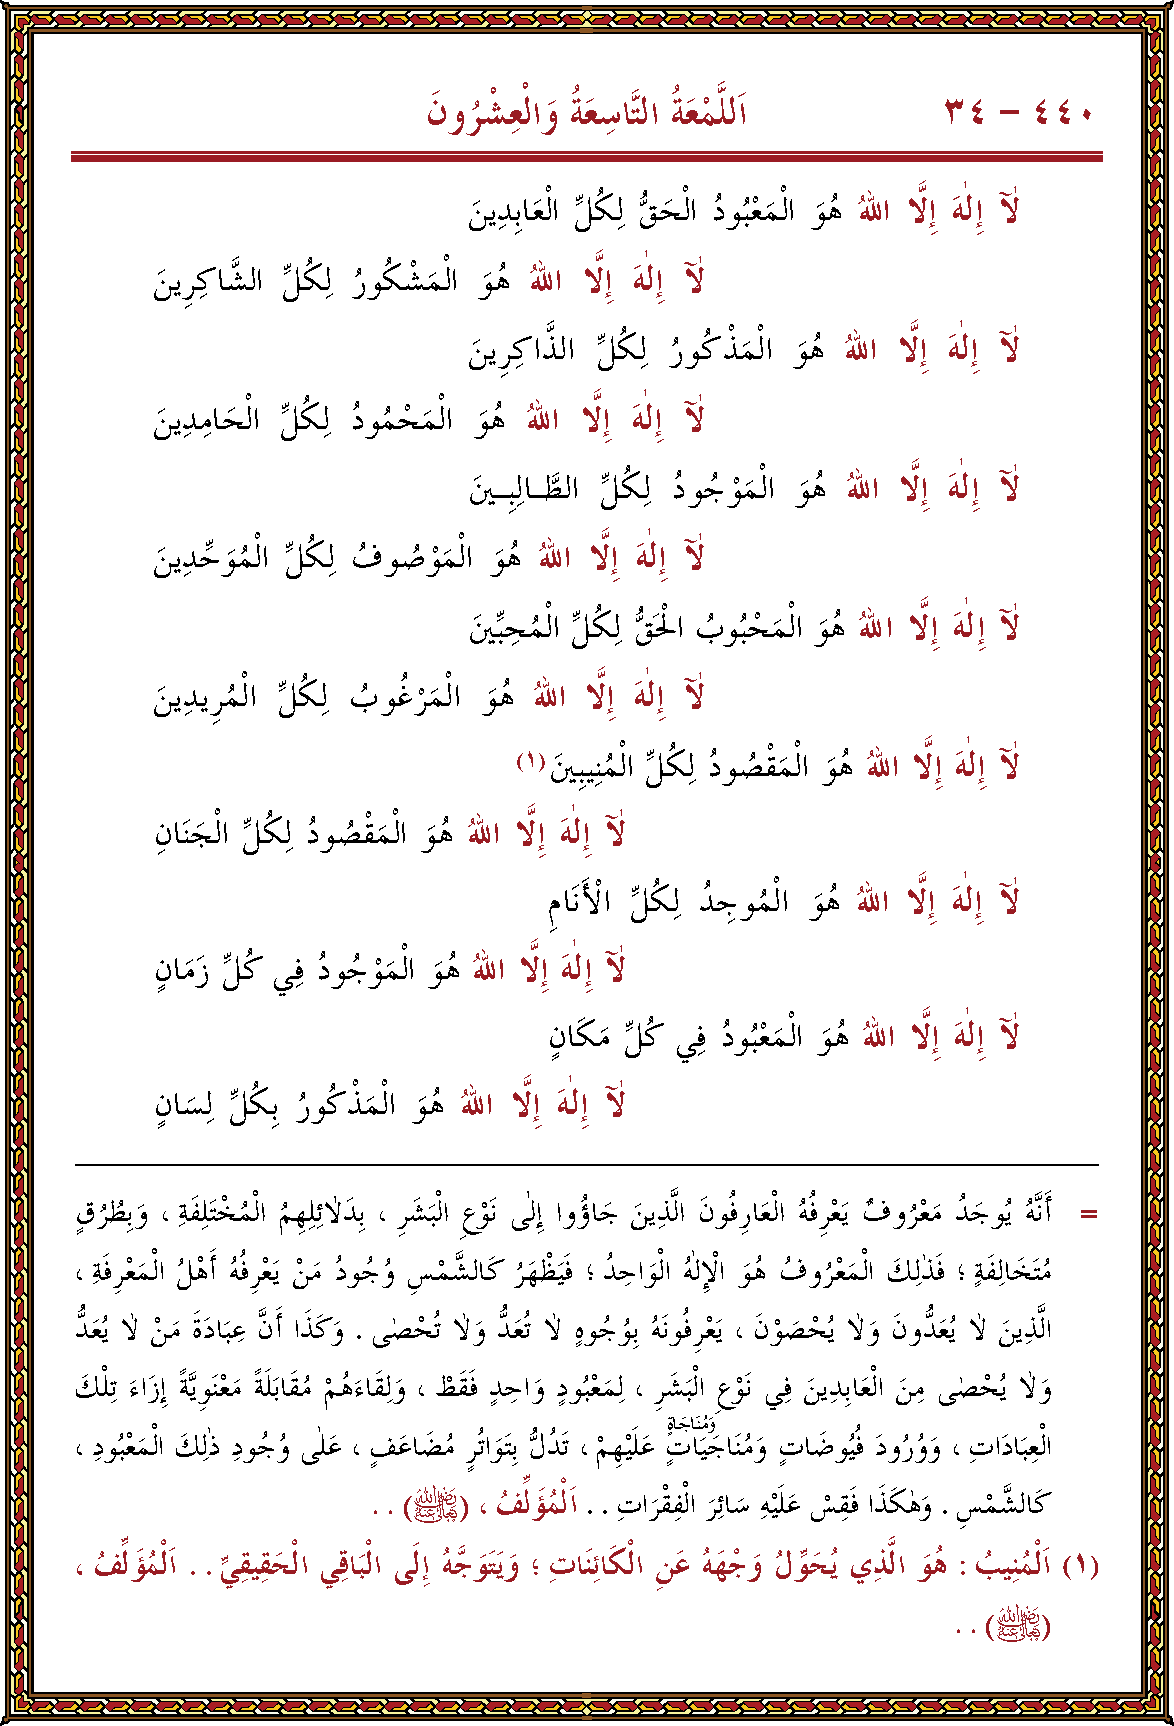 ٤٤٠ – ٣٤ اَللَّمْعَةُ التَّاسِعَةُ وَالْعِشْرُونَ
لَآ إِلٰهَ إِلَّا اللهُ هُوَ الْمَعْبُودُ الْحَقُّ لِكُلِّ الْعَابِدِينَ
لَآ إِلٰهَ إِلَّا اللهُ هُوَ الْمَشْكُورُ لِكُلِّ الشَّاكِرِينَ
لَآ إِلٰهَ إِلَّا اللهُ هُوَ الْمَذْكُورُ لِكُلِّ الذَّاكِرِينَ
لَآ إِلٰهَ إِلَّا اللهُ هُوَ الْمَحْمُودُ لِكُلِّ الْحَامِدِينَ
لَآ إِلٰهَ إِلَّا اللهُ هُوَ الْمَوْجُودُ لِكُلِّ الطَّـالِبِـينَ
لَآ إِلٰهَ إِلَّا اللهُ هُوَ الْمَوْصُوفُ لِكُلِّ الْمُوَحِّدِينَ
لَآ إِلٰهَ إِلَّا اللهُ هُوَ الْمَحْبُوبُ الْحَقُّ لِكُلِّ الْمُحِبِّينَ
لَآ إِلٰهَ إِلَّا اللهُ هُوَ الْمَرْغُوبُ لِكُلِّ الْمُرِيدِينَ
لَآ إِلٰهَ إِلَّا اللهُ هُوَ الْمَقْصُودُ لِكُلِّ الْمُنِيبِينَ(١)
لَآ إِلٰهَ إِلَّا اللهُ هُوَ الْمَقْصُودُ لِكُلِّ الْجَنَانِ
لَآ إِلٰهَ إِلَّا اللهُ هُوَ الْمُوجِدُ لِكُلِّ الْأَنَامِ
لَآ إِلٰهَ إِلَّا اللهُ هُوَ الْمَوْجُودُ فِي كُلِّ زَمَانٍ
لَآ إِلٰهَ إِلَّا اللهُ هُوَ الْمَعْبُودُ فِي كُلِّ مَكَانٍ
لَآ إِلٰهَ إِلَّا اللهُ هُوَ الْمَذْكُورُ بِكُلِّ لِسَانٍ
= أَنَّهُ يُوجَدُ مَعْرُوفٌ يَعْرِفُهُ الْعَارِفُونَ الَّذِينَ جَاؤُوا إِلٰى نَوْعِ الْبَشَرِ ، بِدَلَائِلِهِمُ الْمُخْتَلِفَةِ ، وَبِطُرُقٍ
مُتَخَالِفَةٍ ؛ فَذٰلِكَ الْمَعْرُوفُ هُوَ الْإِلٰهُ الْوَاحِدُ ؛ فَيَظْهَرُ كَالشَّمْسِ وُجُودُ مَنْ يَعْرِفُهُ أَهْلُ الْمَعْرِفَةِ ،
الَّذِينَ لَا يُعَدُّونَ وَلَا يُحْصَوْنَ ، يَعْرِفُونَهُ بِوُجُوهٍ لَا تُعَدُّ وَلَا تُحْصٰى . وَكَذَا أَنَّ عِبَادَةَ مَنْ لَا يُعَدُّ
وَلَا يُحْصٰى مِنَ الْعَابِدِينَ فِي نَوْعِ الْبَشَرِ ، لِمَعْبُودٍ وَاحِدٍ فَقَطْ ، وَلِقَاءَهُمْ مُقَابَلَةً مَعْنَوِيَّةً إِزَاءَ تِلْكَ
وَمُنَاجَاةٍ
الْعِبَادَاتِ ، وَوُرُودَ فُيُوضَاتٍ وَمُنَاجَيَاتٍ عَلَيْهِمْ ، تَدُلُّ بِتَوَاتُرٍ مُضَاعَفٍ ، عَلٰى وُجُودِ ذٰلِكَ الْمَعْبُودِ ،
كَالشَّمْسِ . وَهٰكَذَا فَقِسْ عَلَيْهِ سَائِرَ الْفِقْرَاتِ . . اَلْمُؤَلِّفُ ، (رَضِيَ اللهُ تَعَالَى عَنْهُ) . .
(١) اَلْمُنِيبُ : هُوَ الَّذِي يُحَوِّلُ وَجْهَهُ عَنِ الْكَائِنَاتِ ؛ وَيَتَوَجَّهُ إِلَى الْبَاقِي الْحَقِيقِيِّ . . اَلْمُؤَلِّفُ ،
(رَضِيَ اللهُ تَعَالَى عَنْهُ) . .